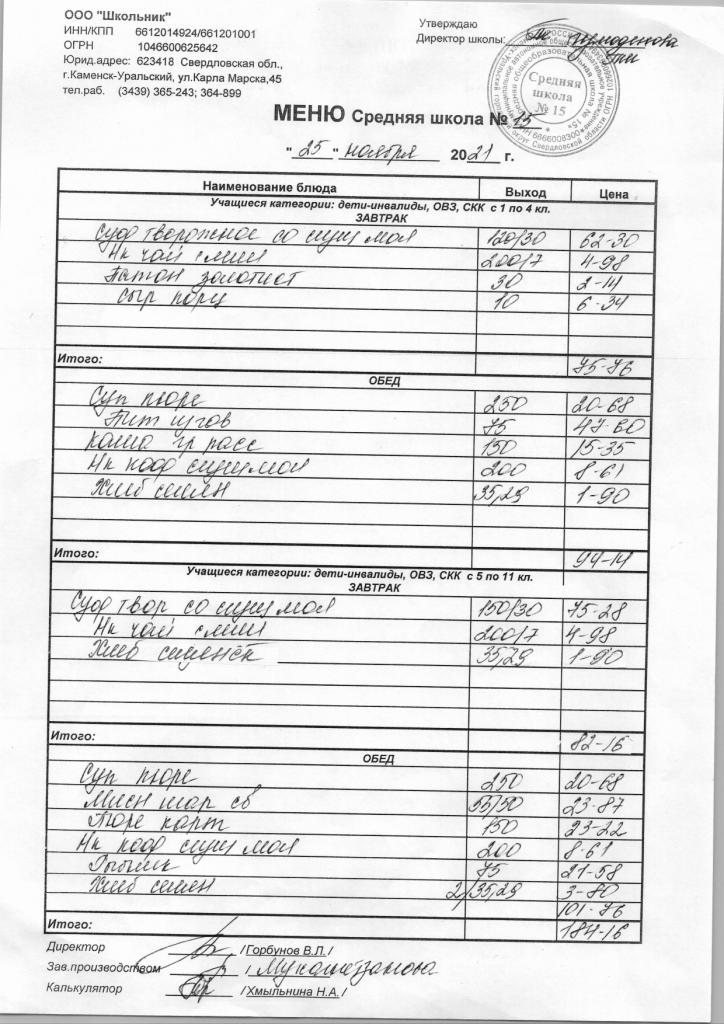 ООО "Школьник"
ИНН/КПП 6612014924/661201001
ОГРН 1046600625642
Юрид.адрес: 623418 Свердловская обл.,
г.Каменск-Уральский, ул.Карла Марска,45
тел.раб. (3439) 365-243; 364-899
Утверждаю
Директор школы:
Средняя
школа
№ 15
МЕНЮ Средняя школа № 15
"25" ноября 2021 г.
Наименование блюда Выход Цена
Учащиеся категории: дети-инвалиды, ОВЗ, СКК с 1 по 4 кл.
ЗАВТРАК
Суф творожное со сгущ мол 120/30 62-30
Нк чай слим 200/7 4-98
Батон золотист 30 2-14
Сыр порц 10 6-34
Итого: 75-76
ОБЕД
Суп пюре 250 20-68
75 47-60
Каша гр расс 150 15-35
Нк коф сгущ мол 200 8-61
Хлеб 35,29 1-90
Итого: 94-14
Учащиеся категории: дети-инвалиды, ОВЗ, СКК с 5 по 11 кл.
ЗАВТРАК
Суф твор со сгущ мол 150/30 75-28
Нк чай слим 200/7 4-98
Хлеб 35,29 1-90
Итого: 82-16
ОБЕД
Суп пюре 250 20-68
55/50 23-87
Пюре карт 150 23-22
Нк коф сгущ мол 200 8-61
75 21-58
Хлеб 2/35,29 3-80
101-76
Итого: 184-16
Директор /Горбунов В.Л./
Зав.производством /
Калькулятор /Хмыльнина Н.А./